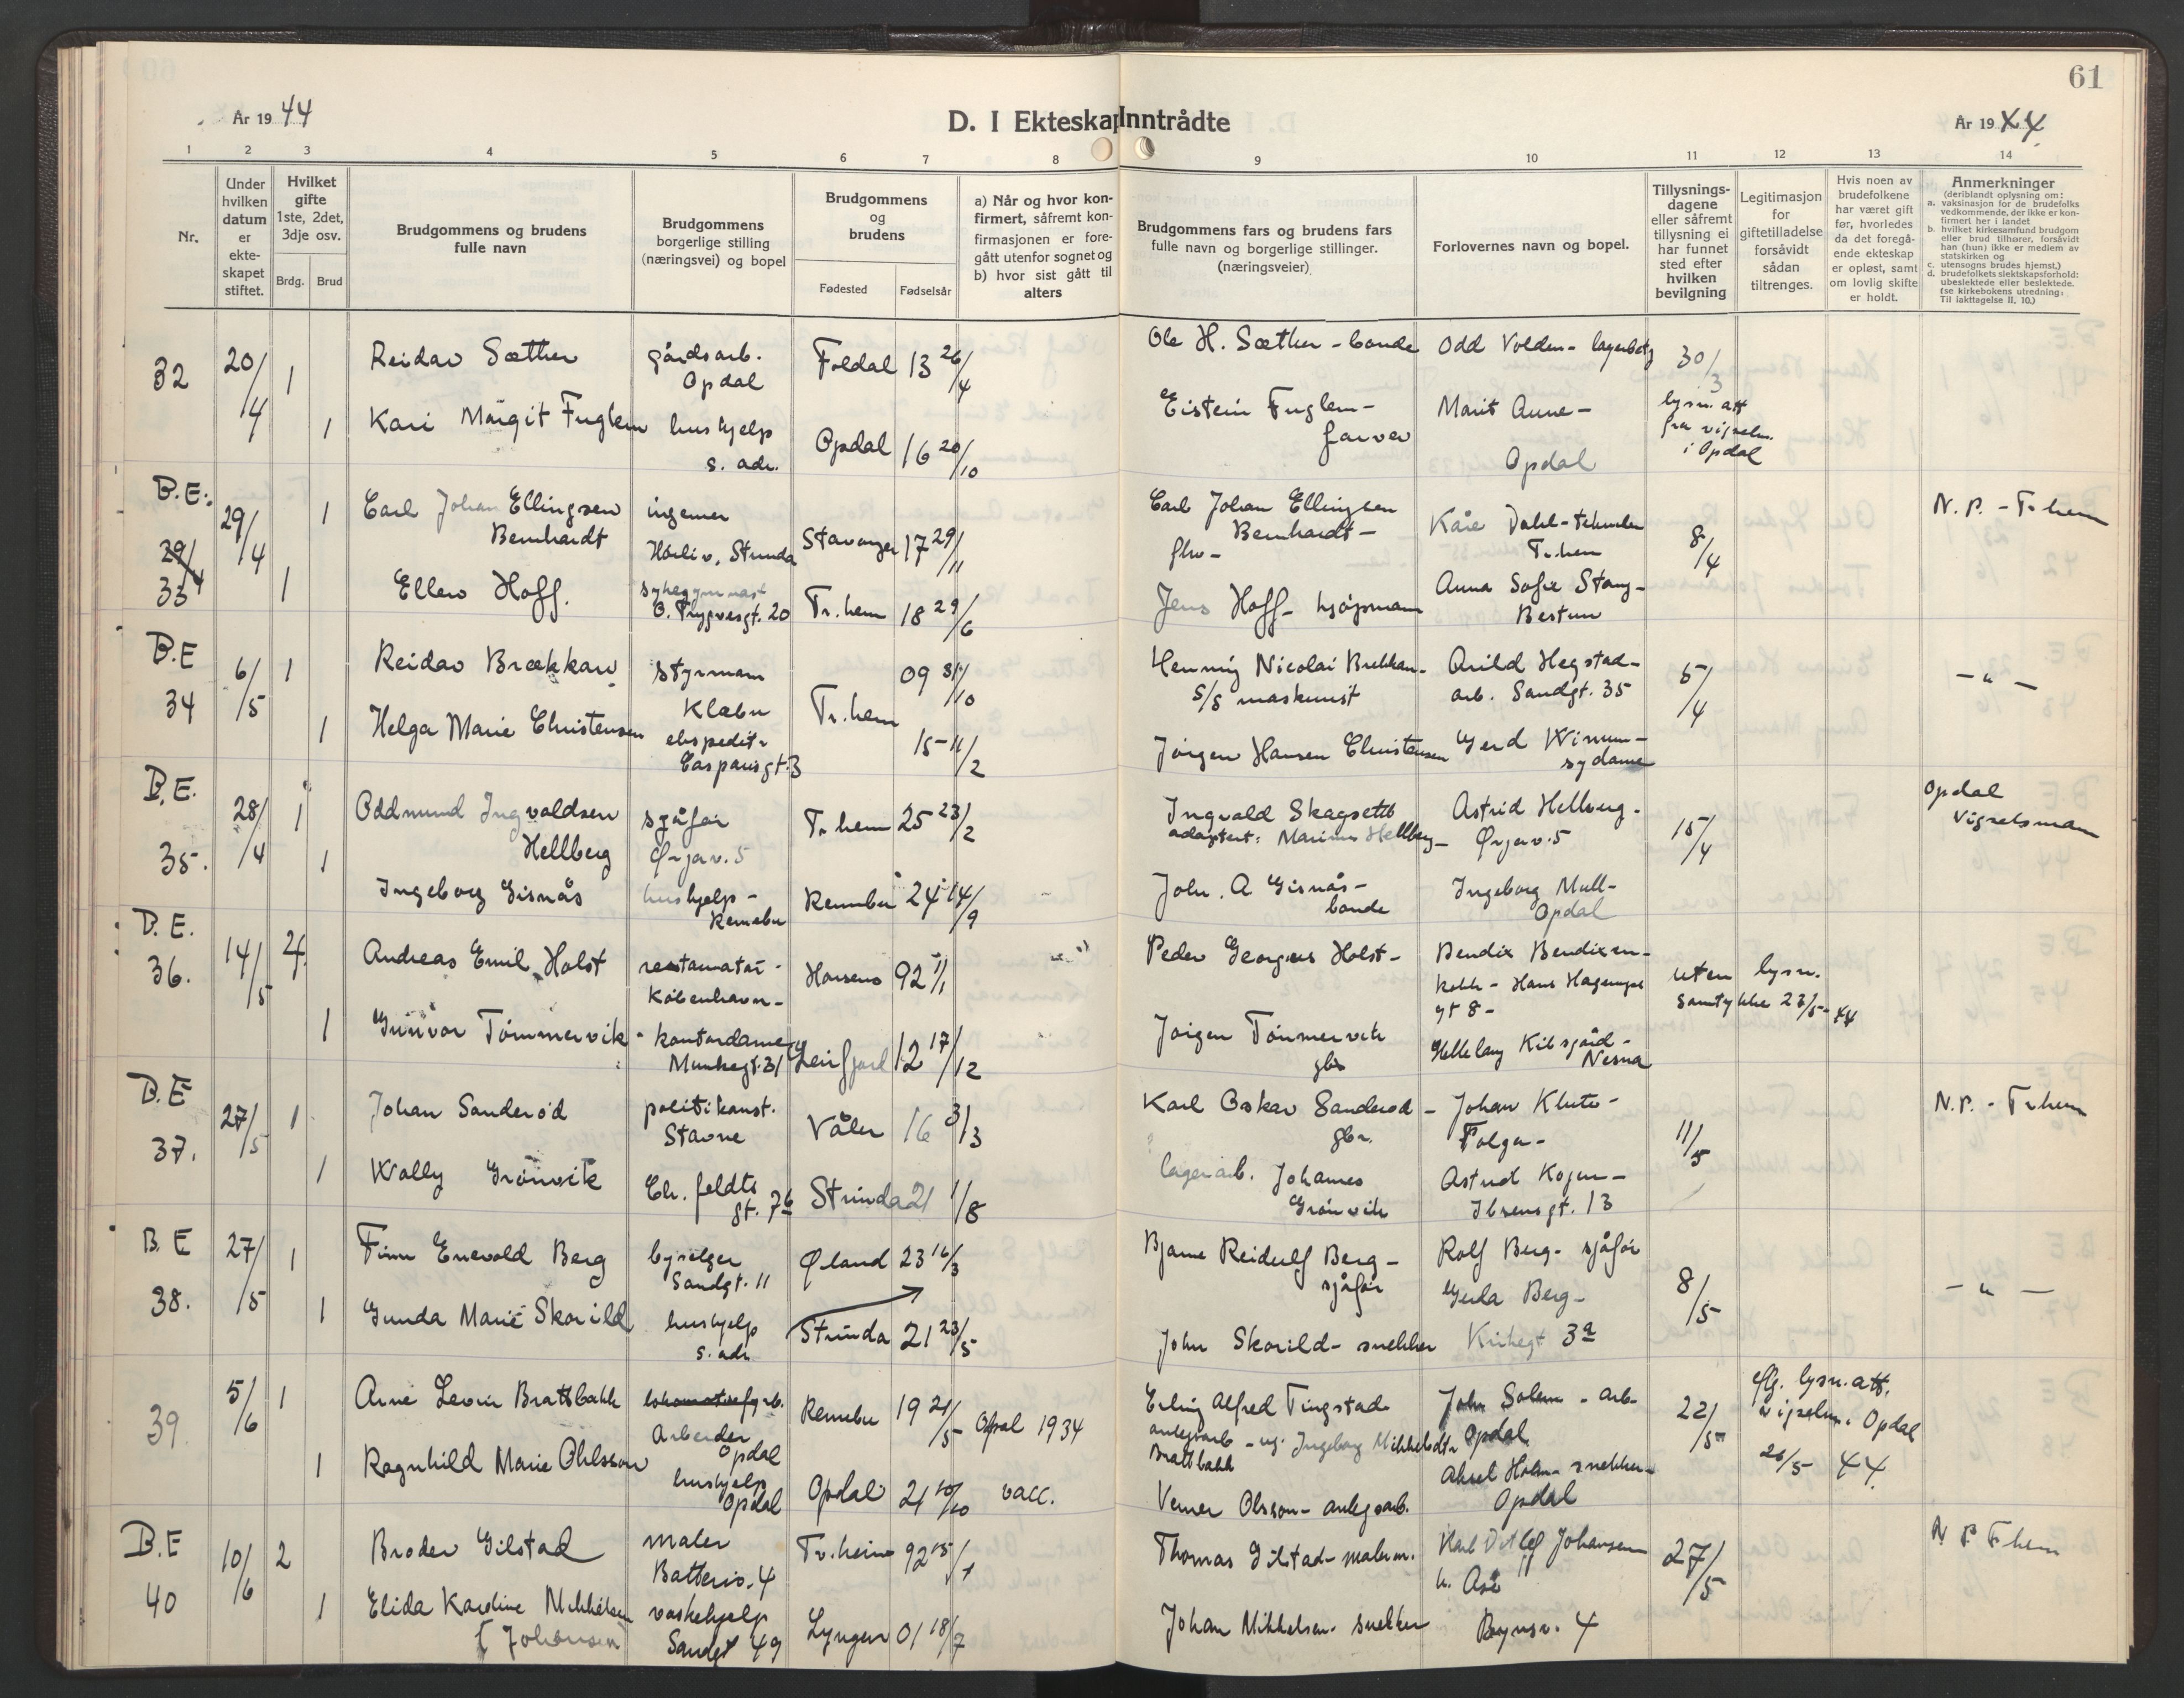 61
År 1944
D. I Ekteskap Inntrådte
År 1944
1 2 3 4 5 6 7 8 9 10 11 12 13 14
Nr.
Under hvilken datum er ekte-skapet stiftet.
Hvilket gifte 1ste, 2det, 3dje osv.
Brdg. Brud
Brudgommens og brudens fulle navn
Brudgommens borgerlige stilling (næringsvei) og bopel
Brudgommens og brudens
Fødested Fødselsår
a) Når og hvor kon-
firmert, såfremt kon-
firmasjonen er fore-
gått utenfor sognet og
b) hvor sist gått til
alters
Brudgommens fars og brudens fars
fulle navn og borgerlige stillinger.
(næringsveier)
Forlovernes navn og bopel.
Tillysnings-
dagene
eller såfremt
tillysning ei
har funnet
sted efter
hvilken
bevilgning
Legitimasjon
for
giftetilladelse
forsåvidt
sådan
tiltrenges.
Hvis noen av
brudefolkene
har været gift
før, hvorledes
da det foregå-
ende ekteskap
er opløst, samt
om lovlig skifte
er holdt.
Anmerkninger
(deriblandt oplysning om:
a. vaksinasjon for de brudefolks
vedkommende, der ikke er kon-
firmert her i landet
b. hvilket kirkesamfund brudgom
eller brud tilhører, forsåvidt
han (hun) ikke er medlem av
statskirken og
c. utensogns brudes hjemst.)
d. brudefolkets slektskapsforhold:
ubeslektede eller beslektede.
(se kirkebokens utredning:
Til iakttagelse II, 10.)
32 20/4 1 Reidar Sæther gårdsarb. Opdal Foldal 13 26/4 Ole H. Sæther - bonde Odd Volden - 30/3
1 Kari Margit Fuglem hushjelp s. adr. Opdal 16 20/10 Eistein Fuglem - farver Marit Aune - Opdal lysn. att fra vigselm. i Opdal
B.E. 29/4 33 29/4 1 Carl Johan Ellingsen Bernhardt ingeniør Strinda Stavanger 17 29/11 Carl Johan Ellingsen Bernhardt - Kåre Dahl - Tr.hem 8/4 N.P. - Tr.hem
1 Ellen Hoff. sykegymnast O. Trygvesgt. 20 Tr.hem 18 29/6 Jens Hoff - kjøpmann Anna Sofie Stang - Bestum
B.E 34 6/5 1 Reidar Brækkan styrmann Klæbu 09 31/10 Henning Nicolai Brekkan - S/S maskinist Arild Hegstad - arb. Sandgt. 35 5/4 - " -
1 Helga Marie Christensen ekspeditr Casparisgt. 3 Tr.hem 15 11/2 Jørgen Hansen Christensen Gerd - sydame
B.E. 35. 28/4 1 Oddmund Ingvaldsen Hellberg sjåfør Ørjav. 5 Tr.hem 25 23/2 Ingvald Skagseth adoptert: Marius Hellberg - Astrid Hellberg - Ørjav. 5 15/4 Opdal vigselsmann
1 Ingeborg Gisnås hushjelp - Rennebu Rennebu 24 14/9 John. A Gisnås - bonde Ingeborg Mull - Opdal
B.E. 36. 14/5 2. Andreas Emil Holst restauratør - København - Horsens 92 1/1 Peder Georgius Holst - Bendix Bendixen - kokk - Hans Hagens gt 8 - uten lysn. samtykke 23/5-44
1 Gunvor Tømmervik - kontordame Munkegt. 31 Leirfjord 12 17/12 Jørgen Tømmervik gbr - Nesna
B.E 37. 27/5 1 Johan Sanderød politikonst. Stavne Våler 16 3/3 Karl Oskar Sanderød - gbr. Johan - Tolga - 11/5 N.P. - Tr.hem
1 Wally Grønvik Ch. feldts gt. 7b Strinda 21 1/8 lagerarb. Johannes Grønvik Astrid Kojen - Ibsensgt. 13
B.E 38. 27/5 1 Finn Enevold Berg byselger Sandgt. 11 Ørland 23 16/3 Bjarne Reidulf Berg - sjåfør Rolf Berg - sjåfør 8/5 - " -
1 Gunda Marie Skarild hushjelp s. adr. Strinda 21 23/5 John Skarild - snekker Gerda Berg - Kirkegt 3a
39. 5/6 1 Arne Levin Brattbakk Arbeider Opdal Rennebu 19 21/5 Opdal 1934 Erling Alfred Tingstad anlegsarb - ug. Ingeborg Mikkelsdtr Brattbakk John Solem - arb - Opdal 22/5 iflg. lysn. att. vigselm. i Opdal 26/5 44.
1 Ragnhild Marie Ohlsson hushjelp Opdal Opdal 21 10/10 vacc. Verner Olsson - anlegsarb. Aksel Holm - snekker - Opdal
B.E 40 10/6 2 Broder Gilstad maler Batteriv. 4 Tr.heim 92 15/1 Thomas Gilstad - malerm. Karl Ditlef Johansen 27/5 N P Trhem
1 Elida Kardine Mikkelsen f Johansen vaskehjelp Sandgt 49 Lyngen 01 18/7 Johan Mikkelsen - snekker Bynesv. 4